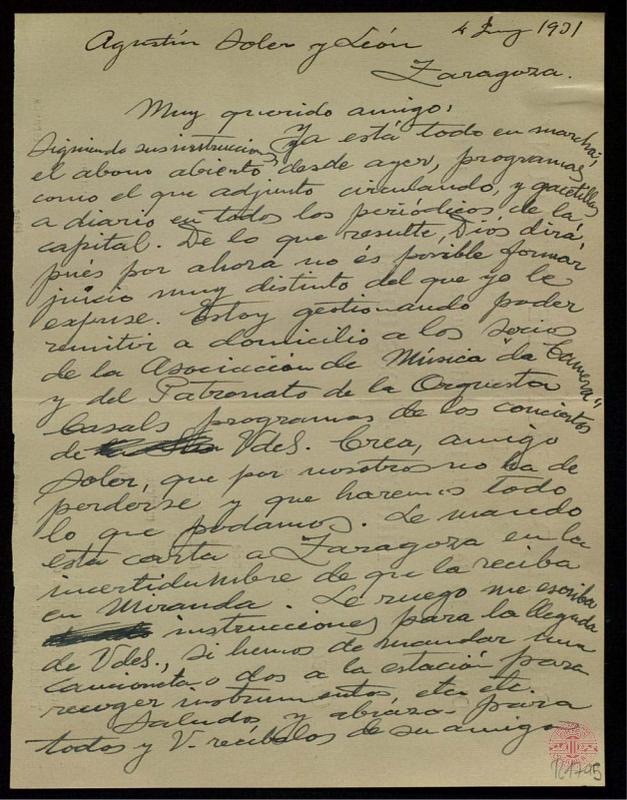 4 Juny 1931
Agustín Soler y León
Zaragoza.
Muy querido amigo:
Siguiendo sus instrucciones ya está todo en marcha;
el abono abierto desde ayer, programas
como el que adjunto circulando, y gacetillas
a diario en todos los periódicos de la
capital. De lo que resulte, Dios dirá,
pués por ahora no és posible formar
juicio muy distinto del que yo le
expuse. Estoy gestionando poder
remitir a domicilio a los socios
de la Asociación de Música "da Camera"
y del Patronato de la Orquesta
Casals programas de los conciertos
de Vdes. Crea, amigo
Soler, que por nosotros no ha de
perderse y que haremos todo
lo que podamos. Le mando
esta carta a Zaragoza en la
incertidumbre de que la reciba
en Miranda. Le ruego me escriba
instrucciones para la llegada
de Vdes., si hemos de mandar una
camioneta o dos a la estación para
recoger instrumentos etc etc.
Saludos y abrazo para
todos y V. recíbalos de su amigo